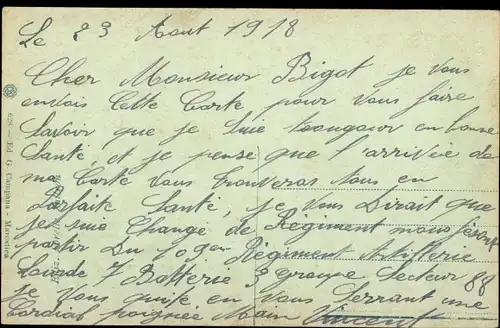 Le 23 Aout 1918
Cher Monsieur Bigot je vous
envois cette Carte pour vous faire
savoir que je suie tougour en bonne
Santé, et je pense que l'arrivée de
ma Carte vous trouveras tous en
Parfaite Santé, je vous Dirait que
je suie Changé de Régiment nous
partir Du Régiment Artillerie
Lourde 7 Batterie 3 groupe Secteur 88
je vous quite en vous Serrant une
Cordial poignée Main Vincent
628 — Ed. G. Campana - Marseille